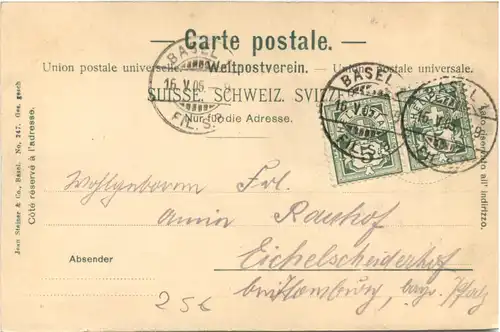 — Carte postale. —
Union postale universelle. — Weltpostverein. — Union postale universale.
SUISSE. SCHWEIZ. SVIZZERA.
Nur für die Adresse.
BASEL
16. V. 05
FIL. S. B.
BASEL
16. V. 05
BASEL
16. V. 05
5
Wohlgeboren Frl.
Rauhof
Eichelscheiderhof
bayr. Pfalz
Absender
256
Jean Steiner & Co., Basel. No. 247. Ges. gesch
Côté réservé à l'adresse.
Lato riservato all' indirizzo.